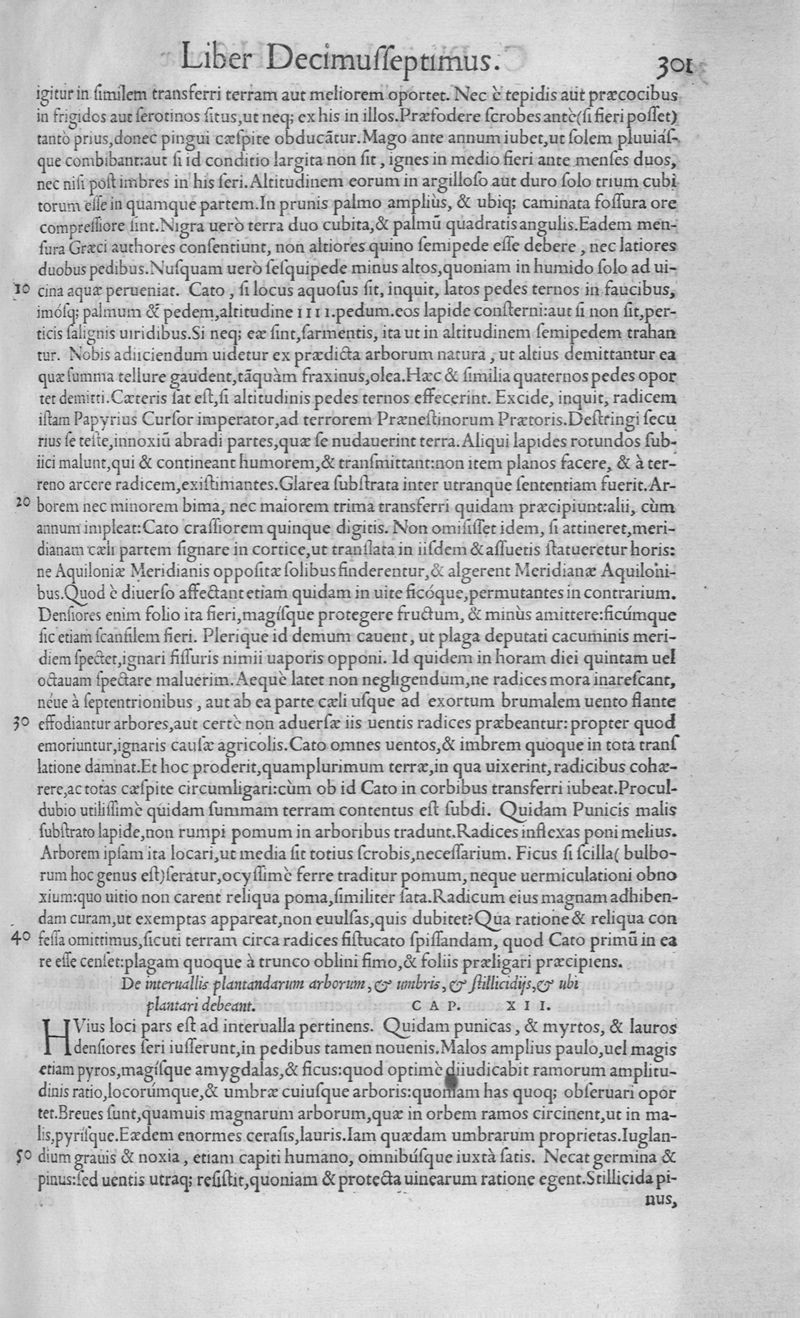 Liber Decimusſeptimus. 301
igitur in ſimilem transferri terram aut meliorem oportet. Nec è tepidis aut præcocibus
in frigidos aut ſerotinos ſitus,ut neq; ex his in illos.Præfodere ſcrobes antè(ſi fieri poſſet)
tantò prius,donec pingui cæſpite obducãtur.Mago ante annum iubet,ut ſolem pluuiáſ-
que combibant:aut ſi id conditio largita non ſit , ignes in medio fieri ante menſes duos,
nec niſi poſt imbres in his ſeri.Altitudinem eorum in argilloſo aut duro ſolo trium cubi
torum eſſe in quamque partem.In prunis palmo ampliùs, & ubiq; caminata foſſura ore
compreſſiore ſint.Nigra uerò terra duo cubita,& palmũ quadratis angulis.Eadem men-
ſura Græci authores conſentiunt, non altiores quino ſemipede eſſe debere , nec latiores
duobus pedibus.Nuſquam uerò ſeſquipede minus altos,quoniam in humido ſolo ad ui-
10 cina aquæ perueniat. Cato , ſi locus aquoſus ſit, inquit, latos pedes ternos in faucibus,
imóſq; palmum & pedem,altitudine IIII.pedum.eos lapide conſterni:aut ſi non ſit,per-
ticis ſalignis uiridibus.Si neq; eæ ſint,ſarmentis, ita ut in altitudinem ſemipedem trahan
tur. Nobis adiiciendum uidetur ex prædicta arborum natura , ut altius demittantur ea
quæ ſumma tellure gaudent,tãquàm fraxinus,olea.Hæc & ſimilia quaternos pedes opor
tet demitti.Cæteris ſat eſt,ſi altitudinis pedes ternos effecerint. Excide, inquit, radicem
iſtam Papyrius Curſor imperator,ad terrorem Præneſtinorum Prætoris.Deſtringi ſecu
rius ſe teſte,innoxiũ abradi partes,quæ ſe nudauerint terra.Aliqui lapides rotundos ſub-
iici malunt,qui & contineant humorem,& tranſmittant:non item planos facere, & à ter-
reno arcere radicem,exiſtimantes.Glarea ſubſtrata inter utranque ſententiam fuerit.Ar-
20 borem nec minorem bima, nec maiorem trima transferri quidam præcipiunt:alii, cùm
annum impleat:Cato craſſiorem quinque digitis. Non omiſiſſet idem, ſi attineret,meri-
dianam cæli partem ſignare in cortice,ut tranſlata in iiſdem & aſſuetis ſtatueretur horis:
ne Aquiloniæ Meridianis oppoſitæ ſolibus finderentur,& algerent Meridianæ Aquiloni-
bus.Quod è diuerſo affectant etiam quidam in uite ficóque,permutantes in contrarium.
Denſiores enim folio ita fieri,magíſque protegere fructum, & minùs amittere:ficúmque
ſic etiam ſcanſilem fieri. Plerique id demum cauent, ut plaga deputati cacuminis meri-
diem ſpectet,ignari fiſſuris nimii uaporis opponi. Id quidem in horam diei quintam uel
octauam ſpectare maluerim.Aequè latet non negligendum,ne radices mora inareſcant,
néue à ſeptentrionibus , aut ab ea parte cæli uſque ad exortum brumalem uento flante
30 effodiantur arbores,aut certè non aduerſæ iis uentis radices præbeantur: propter quod
emoriuntur,ignaris cauſæ agricolis.Cato omnes uentos,& imbrem quoque in tota tranſ
latione damnat.Et hoc proderit,quamplurimum terræ,in qua uixerint,radicibus cohæ-
rere,ac totas cæſpite circumligari:cùm ob id Cato in corbibus transferri iubeat.Procul-
dubio utiliſſimè quidam ſummam terram contentus eſt ſubdi. Quidam Punicis malis
ſubſtrato lapide,non rumpi pomum in arboribus tradunt.Radices inflexas poni melius.
Arborem ipſam ita locari,ut media ſit totius ſcrobis,neceſſarium. Ficus ſi ſcilla( bulbo-
rum hoc genus eſt)ſeratur,ocyſſimè ferre traditur pomum, neque uermiculationi obno
xium:quo uitio non carent reliqua poma,ſimiliter ſata.Radicum eius magnam adhiben-
dam curam,ut exemptas appareat,non euulſas,quis dubitet?Qua ratione & reliqua con
40 feſſa omittimus,ſicuti terram circa radices fiſtucato ſpiſſandam, quod Cato primũ in ea
re eſſe cenſet:plagam quoque à trunco oblini fimo,& foliis præligari præcipiens.
De interuallis plantandarum arborum, & umbris, & ſtillicidijs,& ubi
plantari debeant. CAP. XII.
HVius loci pars eſt ad interualla pertinens. Quidam punicas , & myrtos, & lauros
denſiores ſeri iuſſerunt,in pedibus tamen nouenis.Malos amplius paulo,uel magis
etiam pyros,magíſque amygdalas,& ficus:quod optimè diiudicabit ramorum amplitu-
dinis ratio,locorúmque,& umbræ cuiuſque arboris:quoniam has quoq; obſeruari opor
tet.Breues ſunt,quamuis magnarum arborum,quæ in orbem ramos circinent,ut in ma-
lis,pyriſque.Eædem enormes ceraſis,lauris.Iam quædam umbrarum proprietas.Iuglan-
50 dium grauis & noxia , etiam capiti humano, omnibúſque iuxtà ſatis. Necat germina &
pinus:ſed uentis utraq; reſiſtit,quoniam & protecta uinearum ratione egent.Stillicida pi-
nus,